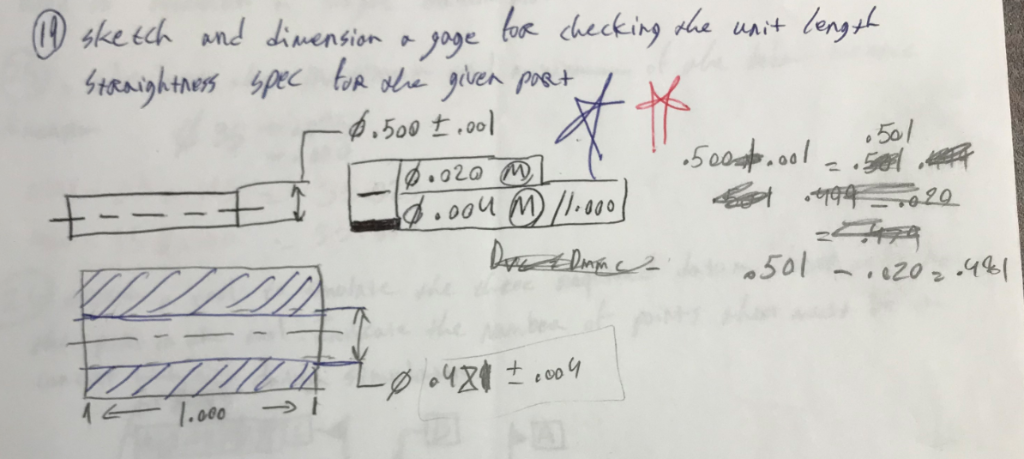 (19) sketch and dimension a gage for checking the unit length
straightness spec for the given part
Ø.500 ± .001
— Ø.020 Ⓜ
Ø.004 Ⓜ /1.000
.501
.500 + .001 = .501
.499 - .020
= .479
Dmmc =
.501 - .020 = .481
Ø .481 ± .004
1.000
D
A